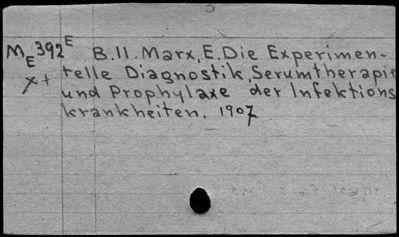 M E 392 E B.11. Marx, E. Die Experimen-
telle Diagnostik, Serumtherapie
x+ und Prophylaxe der Infektions
krankheiten. 1907